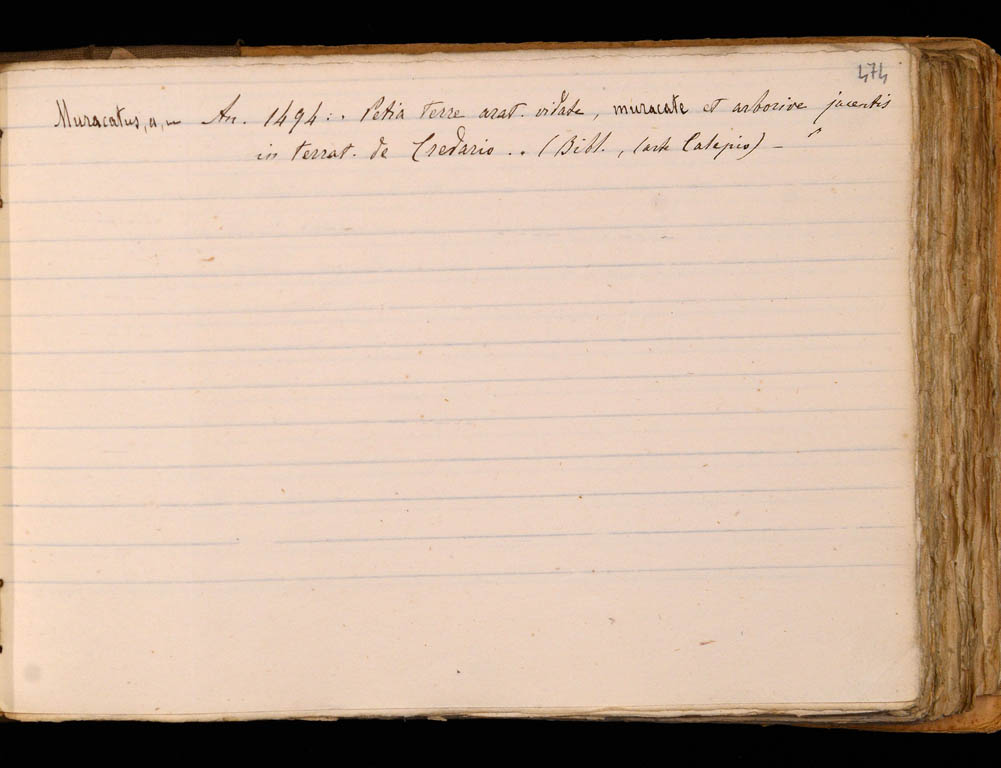 474
Muracatus, a, um An. 1494: . Petia terre arat. vidate, muracate et arborive jacentis
in terrat. de Credario . . (Bibl., cart Calepio) –